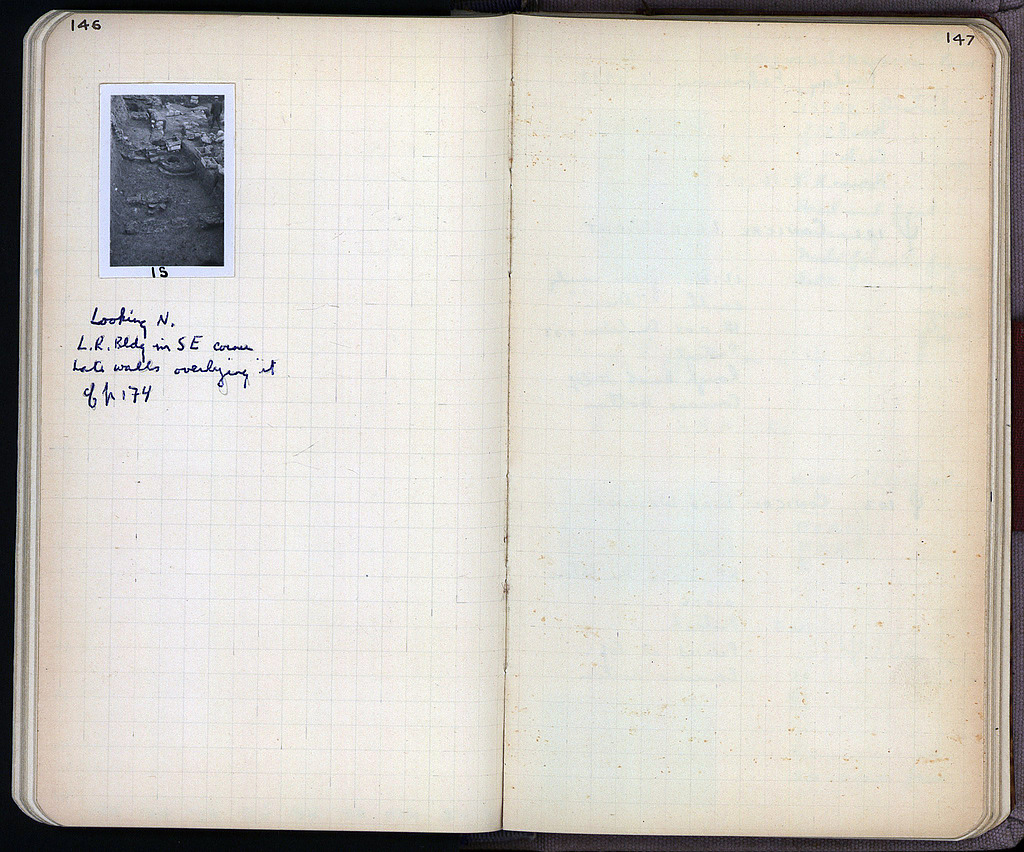 146
147
15
Looking N.
L.R. Bldg in SE corner
Late walls overlying it
cf p 174